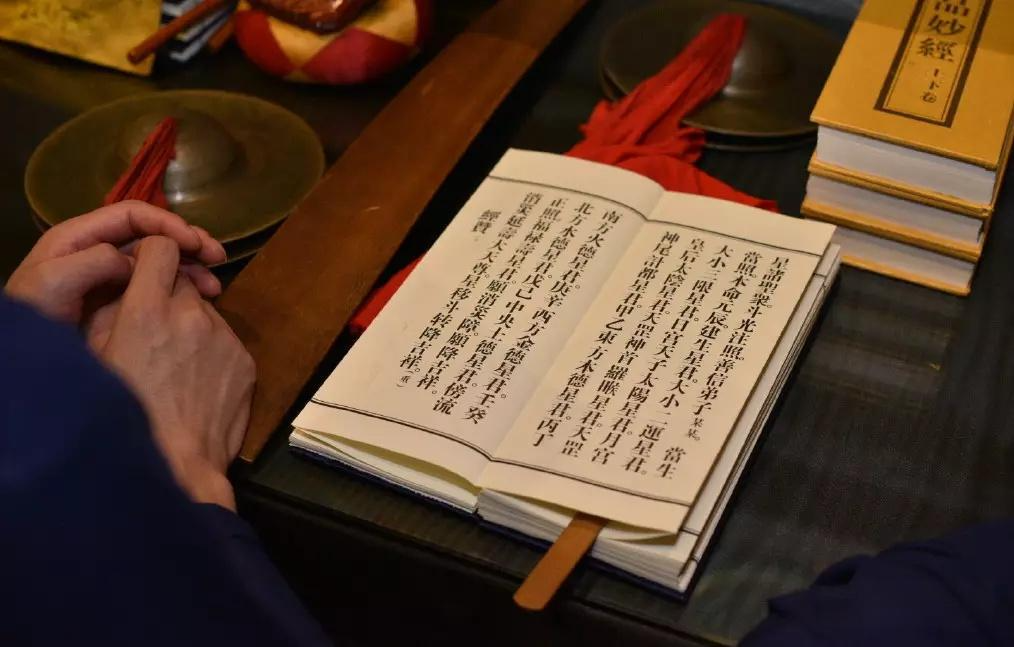 星諸聖衆。斗光注照。善信弟子某某。當生
當照。本命元辰。建生星君。大小二運星君。
大小三限星君。日宮天子太陽星君。月宮
皇后太陰星君。天罡神首羅睺星君。天罡
神尾計都星君。甲乙東方木德星君。丙丁
南方火德星君。庚辛西方金德星君。壬癸
北方水德星君。戊己中央土德星君。傍流
正照福祿壽星君。願消災障。願降吉祥。
消災延壽大天尊。星移斗转降吉祥。(重)
經贊
品妙經
上下卷